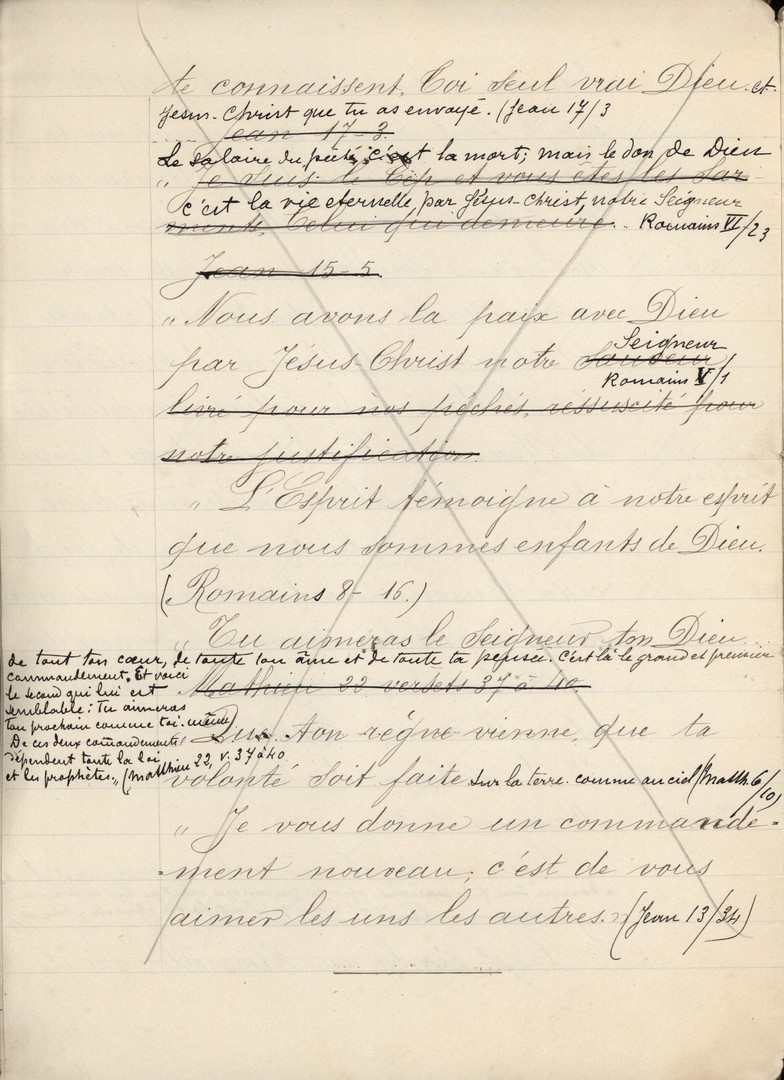 te connaissent, Toi seul vrai Dieu. et
Jesus-Christ que tu as envoyé. (Jean 17/3
Jean 17-3.
Le salaire du péché, c'est la mort; mais le don de Dieu
" Je suis le Cep et vous etes les sar
c'est la vie eternelle, par Jésus-Christ, notre Seigneur
ments, Celui qui demeure. . Romains VI/23
Jean 15-5.
" Nous avons la paix avec Dieu
Seigneur
par Jésus-Christ notre Sauveur
Romains V/1
livré pour nos péchés, ressuscité pour
notre justification.
" L'Esprit témoigne à notre esprit
que nous sommes enfants de Dieu.
(Romains 8-16.)
" Tu aimeras le Seigneur ton Dieu
de tout ton cœur, de toute ton âme et de toute ta pensée. C'est là le grand et premier
commandement, Et voici
le second qui lui est
semblable: Tu aimeras
ton prochain comme toi-même
De ces deux comandements
dépendent toute la loi
et les prophètes." (Matthieu 22, v. 37 à 40
Mathieu 22 versets 37 à 40.
Que ton règne vienne, que ta
volonté soit faite sur la terre comme au ciel (Matth. 6/10)
" Je vous donne un commande-
-ment nouveau; c'est de vous
aimer les uns les autres." (Jean 13/34)